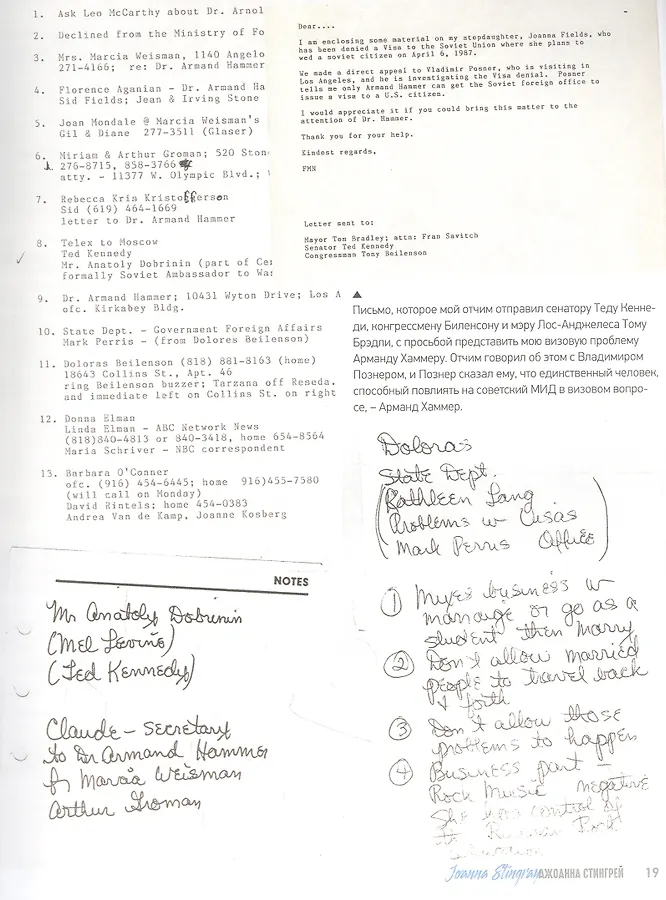 1. Ask Leo McCarthy about Dr. Arnol
2. Declined from the Ministry of Fo
3. Mrs. Marcia Weisman, 1140 Angelo
271-4166; re: Dr. Armand Hammer
4. Florence Aganian - Dr. Armand Ha
Sid Fields; Jean & Irving Stone
5. Joan Mondale @ Marcia Weisman's
Gil & Diane 277-3511 (Glaser)
6. Miriam & Arthur Groman; 520 Ston
276-8715, 858-3766
atty. - 11377 W. Olympic Blvd.;
7. Rebecca Kris Kristofferson
Sid (619) 464-1669
letter to Dr. Armand Hammer
8. Telex to Moscow
Ted Kennedy
Mr. Anatoly Dobrinin (part of Cen
formally Soviet Ambassador to Was
9. Dr. Armand Hammer; 10431 Wyton Drive; Los A
ofc. Kirkabey Bldg.
10. State Dept. - Government Foreign Affairs
Mark Perris - (from Dolores Beilenson)
11. Doloras Beilenson (818) 881-8163 (home)
18643 Collins St., Apt. 46
ring Beilenson buzzer; Tarzana off Reseda.
and immediate left on Collins St. on right
12. Donna Elman
Linda Elman - ABC Network News
(818)840-4813 or 840-3418, home 654-8564
Maria Schriver - NBC correspondent
13. Barbara O'Conner
ofc. (916) 454-6445; home 916)455-7580
(will call on Monday)
David Rintels; home 454-0383
Andrea Van de Kamp, Joanne Kosberg
Dear....
I am enclosing some material on my stepdaughter, Joanna Fields, who
has been denied a Visa to the Soviet Union where she plans to
wed a soviet citizen on April 6, 1987.
We made a direct appeal to Vladimir Posner, who is visiting in
Los Angeles, and he is investigating the Visa denial. Posner
tells me only Armand Hammer can get the Soviet foreign office to
issue a visa to a U.S. citizen.
I would appreciate it if you could bring this matter to the
attention of Dr. Hammer.
Thank you for your help.
Kindest regards,
FMN
Letter sent to:
Mayor Tom Bradley; attn: Fran Savitch
Senator Ted Kennedy
Congressman Tony Beilenson
Письмо, которое мой отчим отправил сенатору Теду Кенне-
ди, конгрессмену Биленсону и мэру Лос-Анджелеса Тому
Брэдли, с просьбой представить мою визовую проблему
Арманду Хаммеру. Отчим говорил об этом с Владимиром
Познером, и Познер сказал ему, что единственный человек,
способный повлиять на советский МИД в визовом вопро-
се, – Арманд Хаммер.
Doloras
State Dept.
(Kathleen Lang
Problems w
Mark Perris Office)
① business w
marriage or go as a
student then marry
② Don't allow married
people to travel back
& forth
③ Don't allow those
problems to happen
④ Business part –
Rock Music negative
She has control of
Rock
NOTES
Mr Anatoly Dobrinin
(Mel Levine)
(Ted Kennedy)
Claude – secretary
to Dr Armand Hammer
Marcia Weisman
Arthur Groman
Joanna Stingray ДЖОАННА СТИНГРЕЙ 19